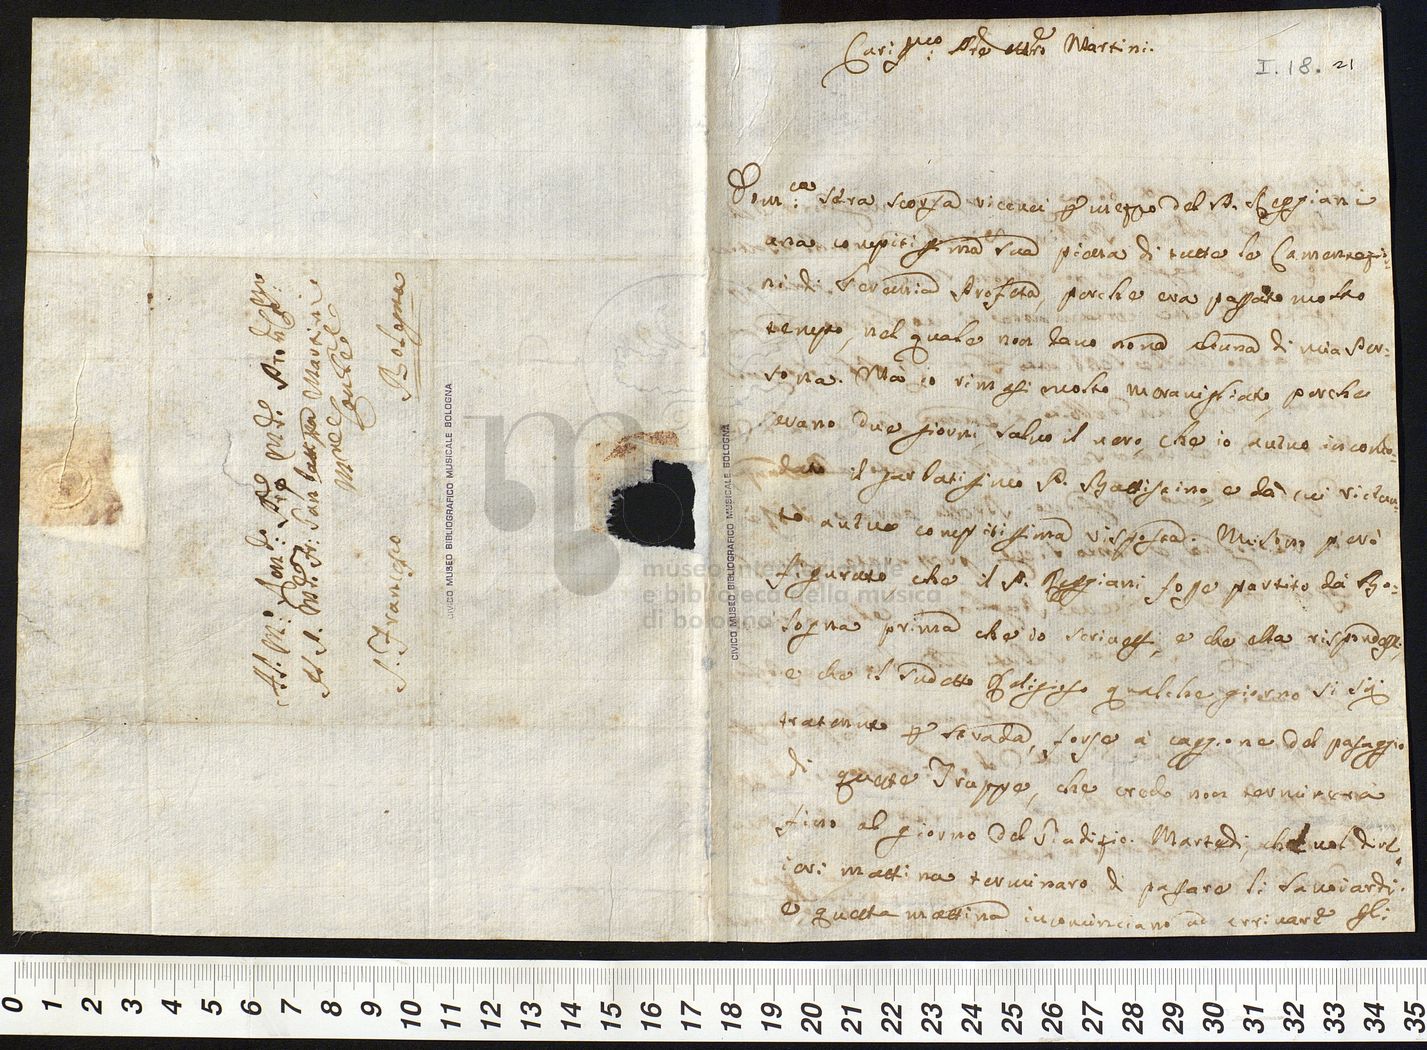 Cariss.mo P.re Mro Martini.
I.18. 21
Dom.ca sera scorsa riceuei p mezzo del P. Reggiani
una compitissima sua piena di tutte le Lamentazio=
ni di Geremia Profeta, perche era passato molto
tempo, nel quale non dauo noua alcuna di mia Per=
sona. Mà io rimasi molto merauigliato, perche
erano due giorni, saluo il uero, che io aueuo incon=
il garbatissimo P. Battistino, e da lui riceuu=
to aueuo compitissima risposta. Mi son però
figurato che il P. Reggiani fosse partito da Bo=
logna prima che io scriuessi, e che ella rispondesse,
e che il sudetto Religioso qualche giorno si sij
tratenuto p strada, forse à caggione del passaggio
di queste Truppe, che credo non terminerà
fino al giorno del Giudizio. Martedi, che uol dire
ieri mattina terminaro di passare li Sauoiardi,
e questa mattina incominciano ad arriuare gli
Al M.to Rendo Pre Pro Colmo
Il P. Mro Fr: Gio: Batta Martini
Minore Conle
S. Francesco
Bologna
CIVICO MUSEO BIBLIOGRAFICO MUSICALE BOLOGNA
CIVICO MUSEO BIBLIOGRAFICO MUSICALE BOLOGNA
museo internazionale
e biblioteca della musica
di bologna
0 1 2 3 4 5 6 7 8 9 10 11 12 13 14 15 16 17 18 19 20 21 22 23 24 25 26 27 28 29 30 31 32 33 34 35